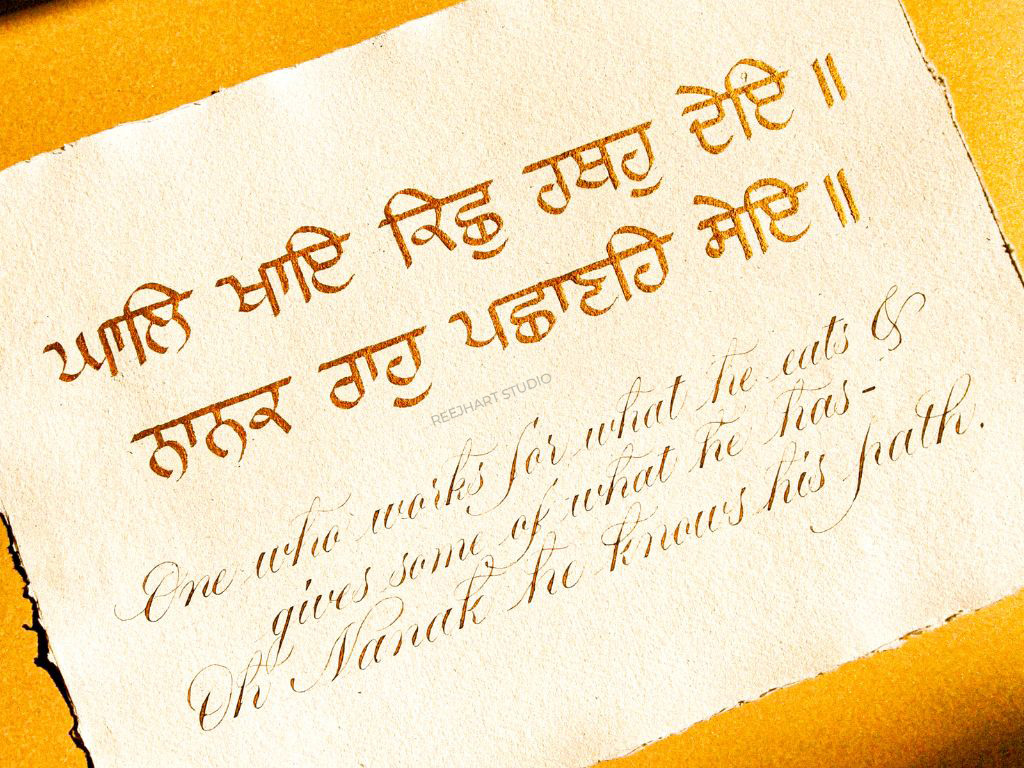 ਘਾਲਿ ਖਾਇ ਕਿਛੁ ਹਥਹੁ ਦੇਇ ॥
ਨਾਨਕ ਰਾਹੁ ਪਛਾਣਹਿ ਸੇਇ ॥
REEJHART STUDIO
One who works for what he eats &
gives some of what he has-
Oh Nanak he knows his path.